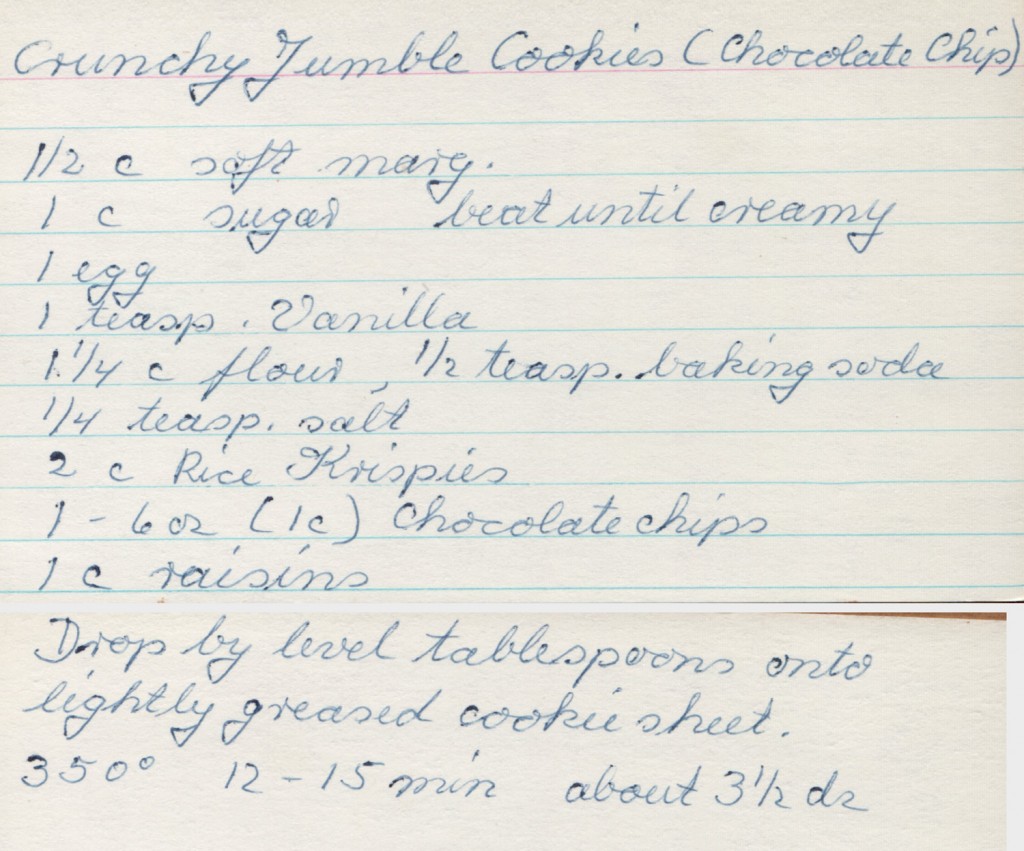 Crunchy Jumble Cookies (Chocolate Chip)
1/2 c soft marg.
1 c sugar beat until creamy
1 egg
1 teasp. Vanilla
1 1/4 c flour, 1/2 teasp. baking soda
1/4 teasp. salt
2 c Rice Krispies
1 - 6 oz (1c) Chocolate chips
1 c raisins
Drop by level tablespoons onto
lightly greased cookie sheet.
350° 12 - 15 min about 3 1/2 dz